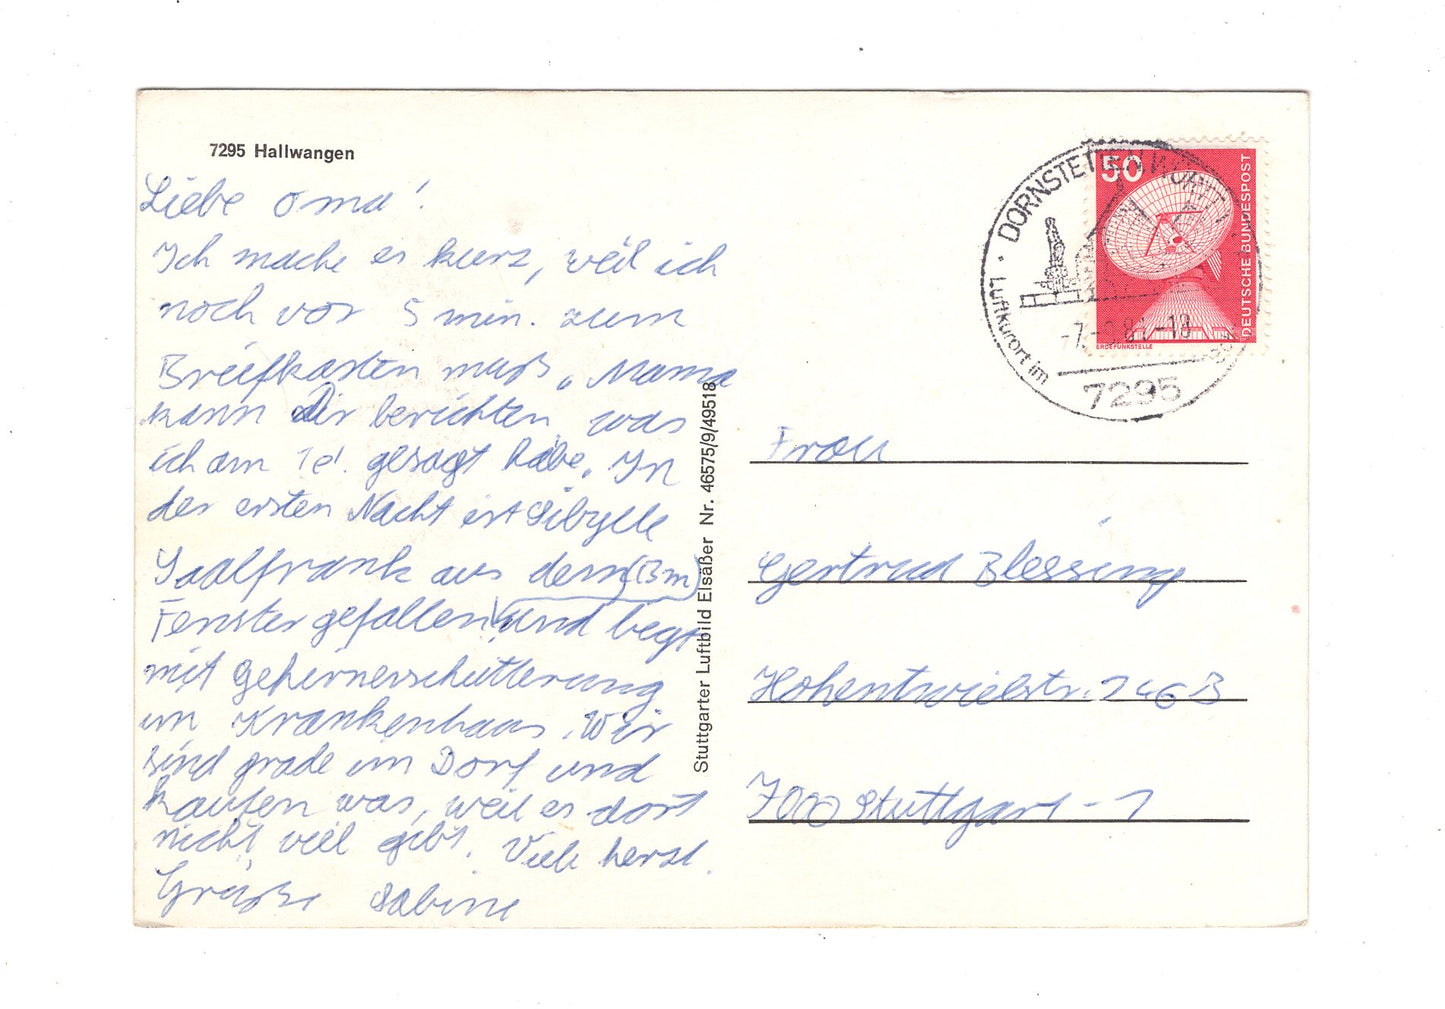 7295 Hallwangen
Liebe Oma!
Ich mache es kurz, weil ich
noch vor 5 min. zum
Briefkasten muß. Mama
kann Dir berichten, was
ich am Tel. gesagt habe. In
der ersten Nacht ist Sibylle
Saalfrank aus dem (3m)
Fenster gefallen und liegt
mit Gehirnerschütterung
im Krankenhaus. Wir
sind grade im Dorf und
kaufen was, weil es dort
nicht viel gibt. Viele herzl.
Grüße Sabine
Stuttgarter Luftbild Elsäßer Nr. 46575/9/49518
DORNSTETTEN WÜRTT
Luftkurort im
7295
50
DEUTSCHE BUNDESPOST
ERDEFUNKSTELLE
Frau
Gertrud Blessing
Hohentwielstr. 146 B
7000 Stuttgart - 1